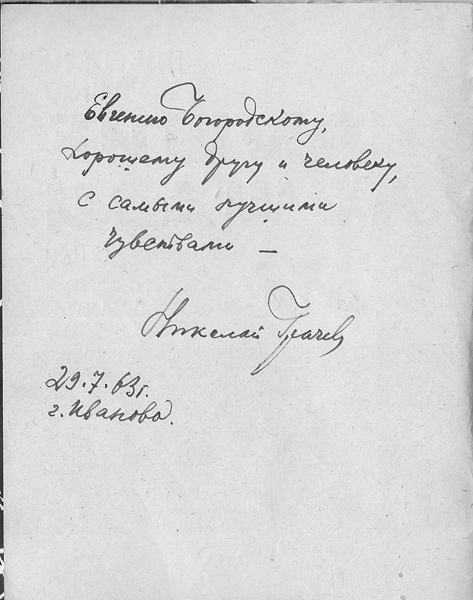 Евгению Богородскому,
хорошему другу и человеку,
с самыми лучшими
чувствами —
Николай Грачев
29.7.63г.
г. Иваново.